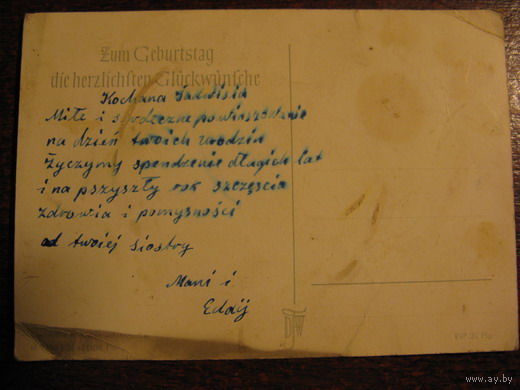 Zum Geburtstag
die herzlichsten Glückwünsche
Kochana Jadwisia
Miłe i serdeczne powinszowanie
na dzień twoich urodzin
Życzymy spendzenie długich lat
i na pszyszły rok szczęścia
zdrowia i pomyśności
od twoiej siostry
Mani i
Edzij
www.ay.by